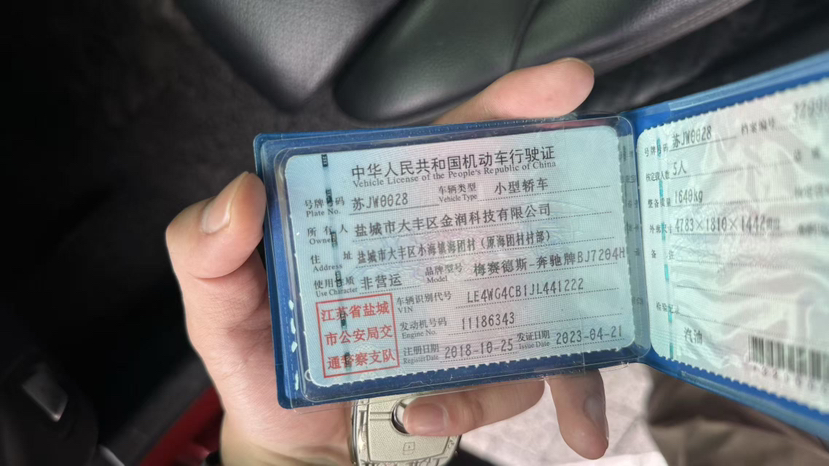 中华人民共和国机动车行驶证
Vehicle License of the People's Republic of China
号牌号码 苏JW0028 车辆类型 小型轿车
Plate No. Vehicle Type
所有人 盐城市大丰区金润科技有限公司
Owner
住址 盐城市大丰区小海镇海团村(原海团村村部)
Address
使用性质 非营运 品牌型号 梅赛德斯-奔驰牌BJ7204H
Use Character Model
江苏省盐城
市公安局交
通警察支队
车辆识别代号 LE4WG4CB1JL441222
VIN
发动机号码 11186343
Engine No.
注册日期 2018-10-25 发证日期 2023-04-21
Register Date Issue Date
号牌号码 苏JW0028 档案编号
核定载人数 5人
整备质量 1640kg
外廓尺寸 4783×1810×1442mm
备注
检验记录
汽油